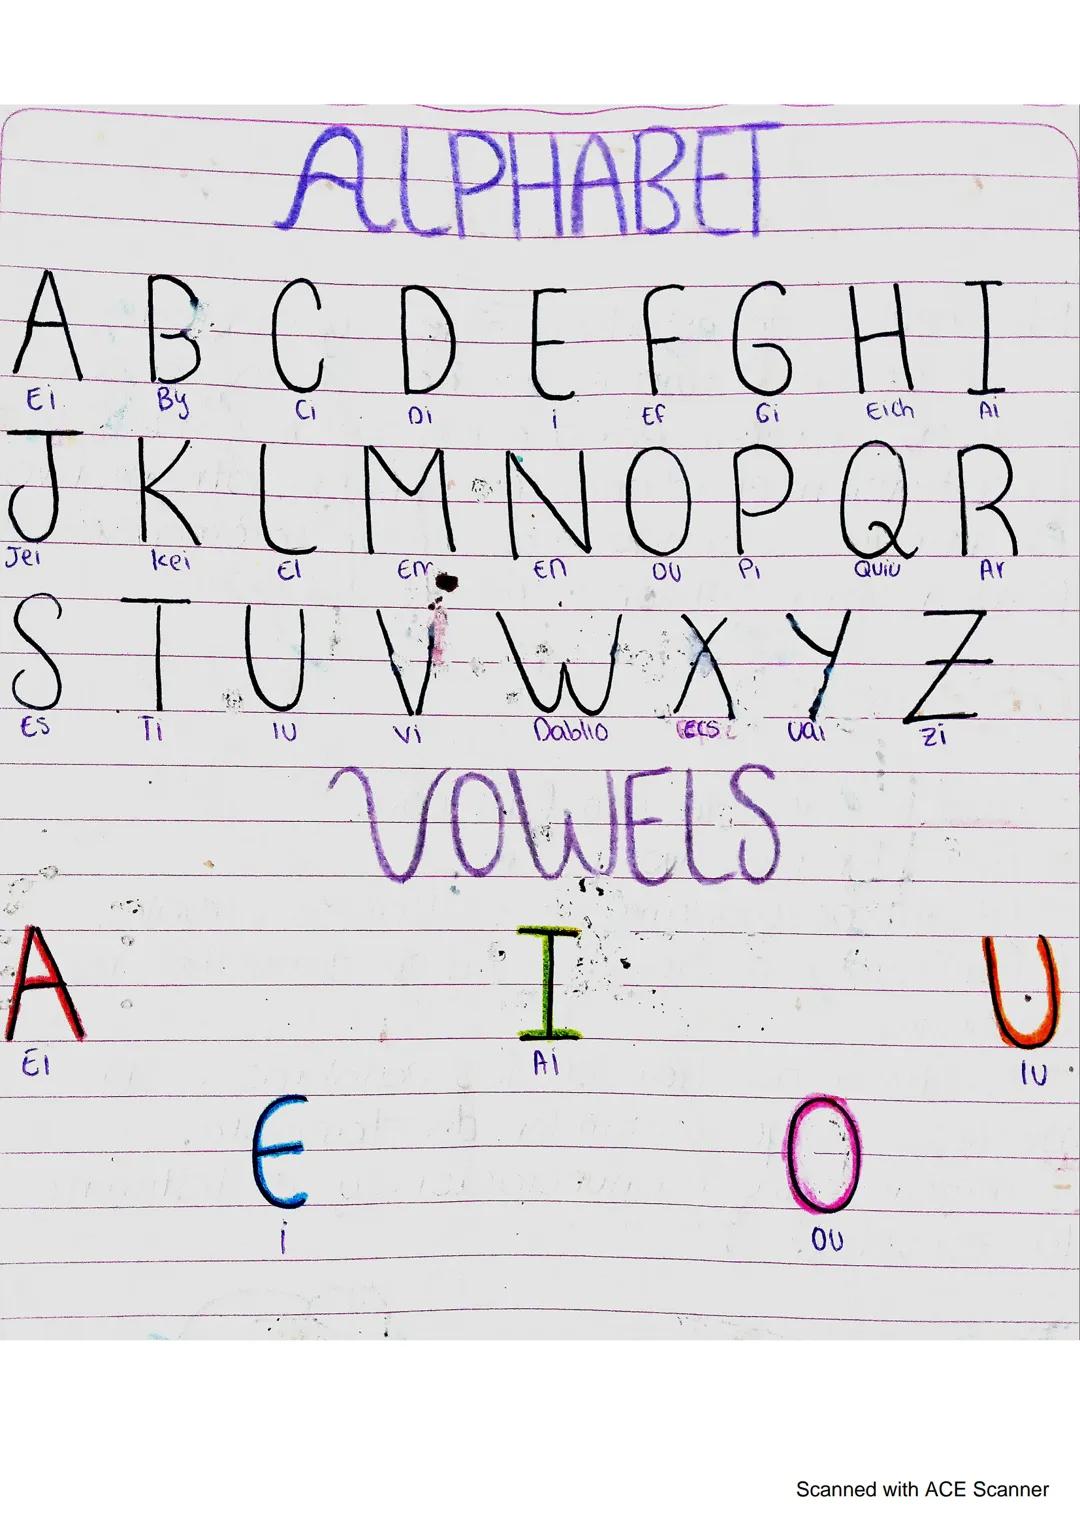 ALPHABET
A B C D E F G H I
Ei By Ci Di i Ef Gi Eich Ai
J K L M N O P Q R
Jei Kei El Em En OU Pi Quiu Ar
S T U V W X Y Z
ES Ti IU Vi Dablio ECS Uai Zi
VOWELS
A I U
Ei Ai IU
E O
i OU
Scanned with ACE Scanner